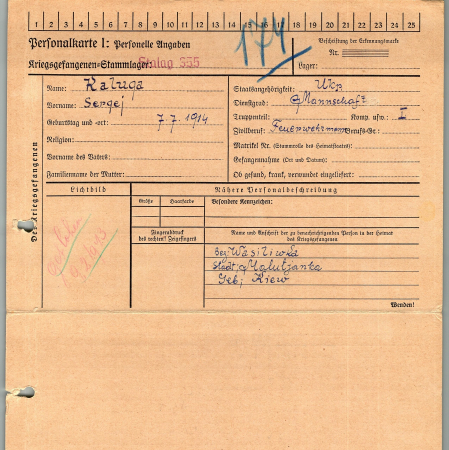 1 2 3 4 5 6 7 8 9 10 11 12 13 14 15 16 17 18 19 20 21 22 23 24 25
Personalkarte I: Personelle Angaben
Kriegsgefangenen-Stammlager: Stalag 355
174
Beschriftung der Erkennungsmarke
Nr.
Lager:
Des Kriegsgefangenen
Name: Kaluga
Vorname: Sergej
Geburtstag und -ort: 7.7.1914
Religion:
Vorname des Vaters:
Familienname der Mutter:
Staatsangehörigkeit: Ukr
Dienstgrad: Mannschaft
Truppenteil: Komp. usw.: I
Zivilberuf: Feuerwehrmann Berufs-Gr.:
Matrikel Nr. (Stammrolle des Heimatstaates):
Gefangennahme (Ort und Datum):
Ob gesund, krank, verwundet eingeliefert:
Lichtbild
Nähere Personalbeschreibung
Größe
Haarfarbe
Besondere Kennzeichen:
Fingerabdruck
des rechten! Zeigefingers
Name und Anschrift der zu benachrichtigenden Person in der Heimat
des Kriegsgefangenen
bej Wasiliwka
Stadt
Geb; Kiew
Wenden!